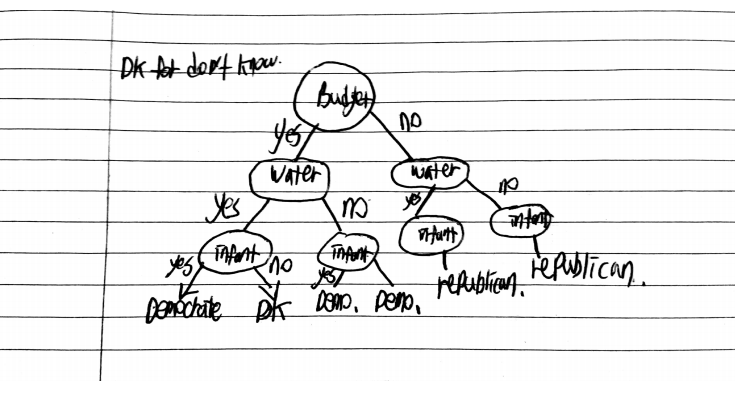 DK for don't know.
Budget
yes no
water water
yes no yes no
infant infant infant infant
yes no yes
Democrate DK Demo. Demo. republican. republican.